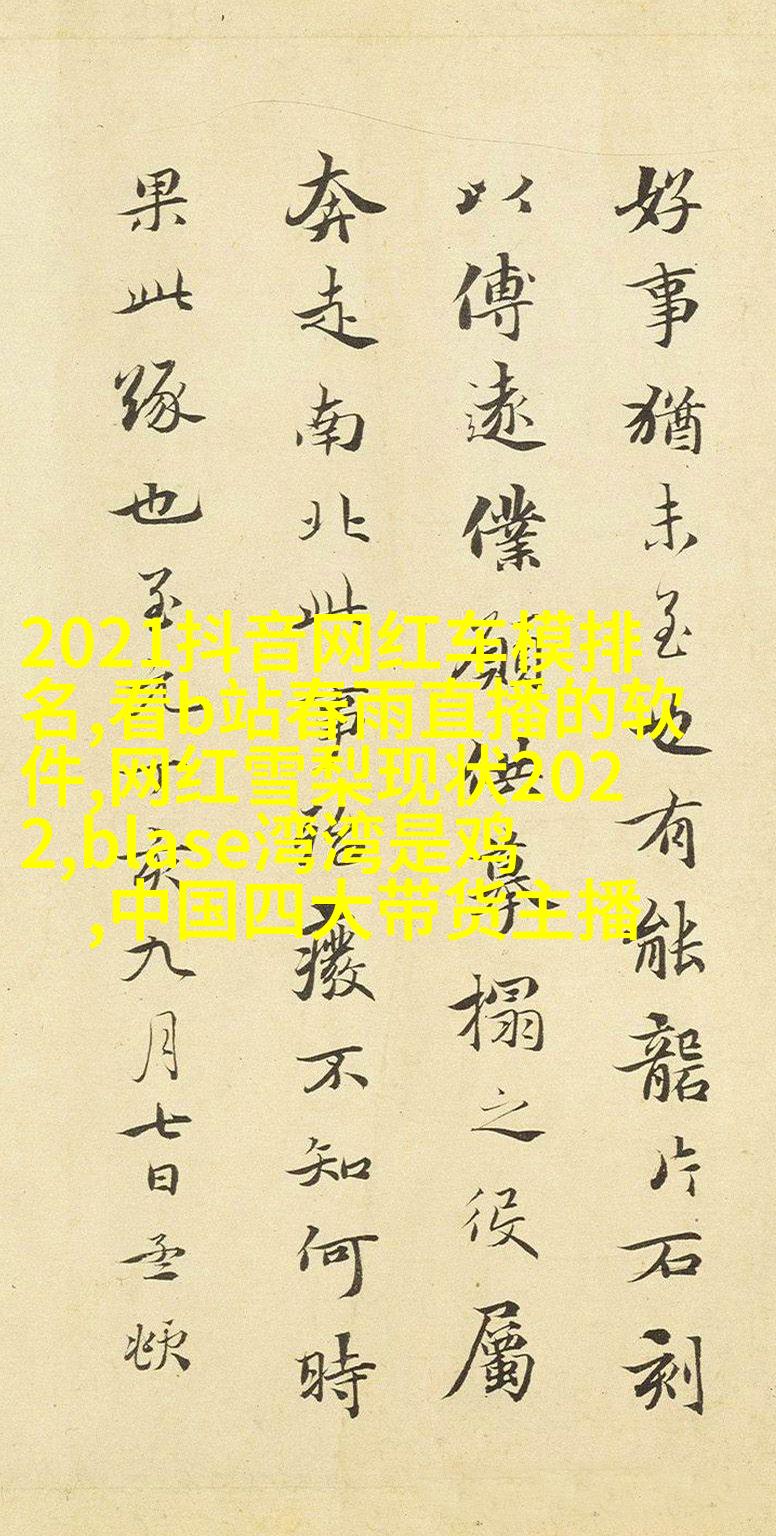 好事猶未至也有能礱片石刻
以傳遠僕願供摹搨之役屬
奔走南北此事殆癈不知何時
果此緣也至元丁亥九月七日孟頫
2021抖音网红车模排
名,看b站春雨直播的软
件,网红雪梨现状202
2,blase湾湾是鸡
,中国四大带货主播